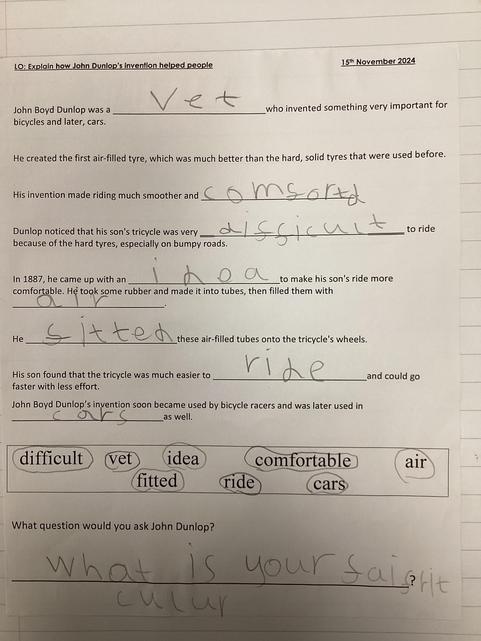 LO: Explain how John Dunlop's invention helped people
15th November 2024
John Boyd Dunlop was a vet who invented something very important for
bicycles and later, cars.
He created the first air-filled tyre, which was much better than the hard, solid tyres that were used before.
His invention made riding much smoother and comsortd
Dunlop noticed that his son's tricycle was very dissicult to ride
because of the hard tyres, especially on bumpy roads.
In 1887, he came up with an idea to make his son's ride more
comfortable. He took some rubber and made it into tubes, then filled them with
air.
He sitted these air-filled tubes onto the tricycle's wheels.
His son found that the tricycle was much easier to ride and could go
faster with less effort.
John Boyd Dunlop's invention soon became used by bicycle racers and was later used in
cars as well.
difficult vet idea comfortable air
fitted ride cars
What question would you ask John Dunlop?
What is your ?
culur